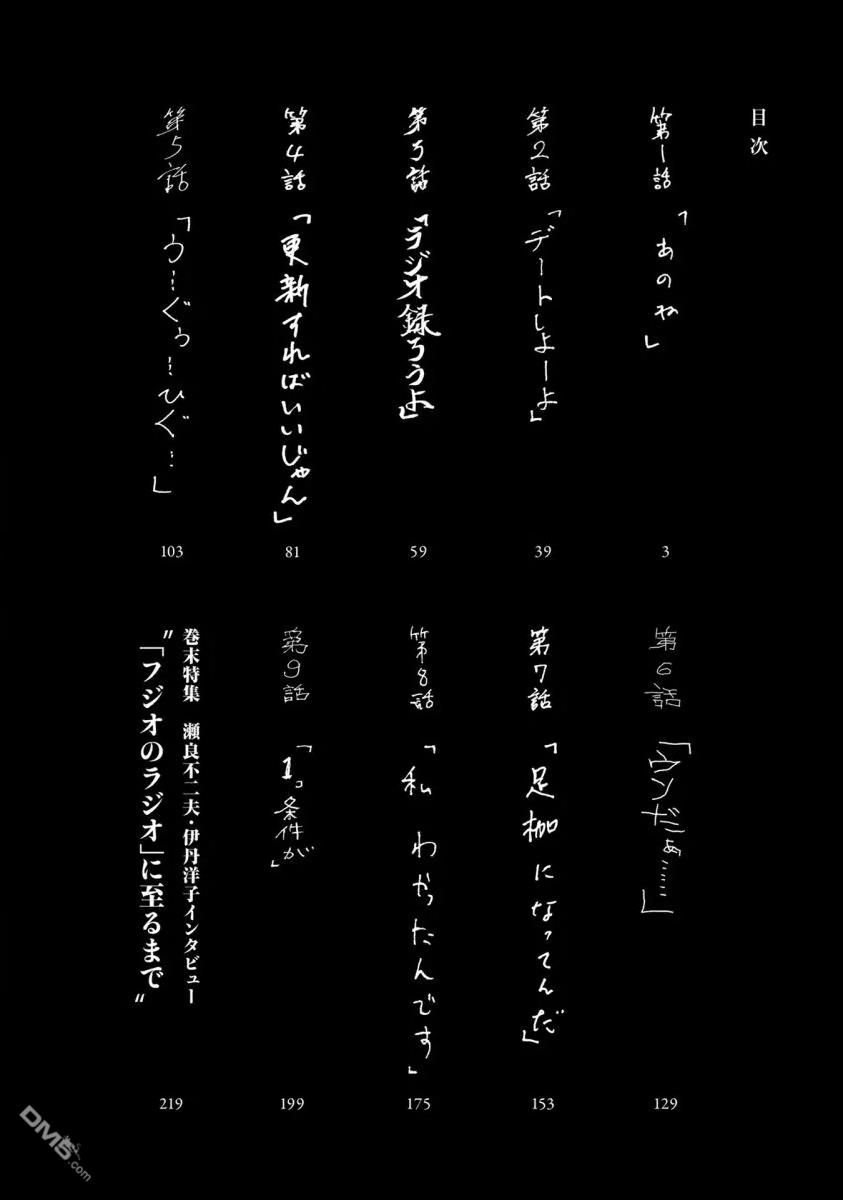 目次
第1話「あのね」
3
第2話「デートしよーよ」
39
第3話「ラジオ録ろうよ」
59
第4話「更新すればいいじゃん」
81
第5話「ウ…ぐぅ…ひぐ…」
103
第6話「ウソだぁ……」
129
第7話「足枷になってんだ」
153
第8話「私 わかったんです」
175
第9話「1コ条件が」
199
巻末特集 瀬良不二夫・伊丹洋子インタビュー
"「フジオのラジオ」に至るまで"
219
DM5.com